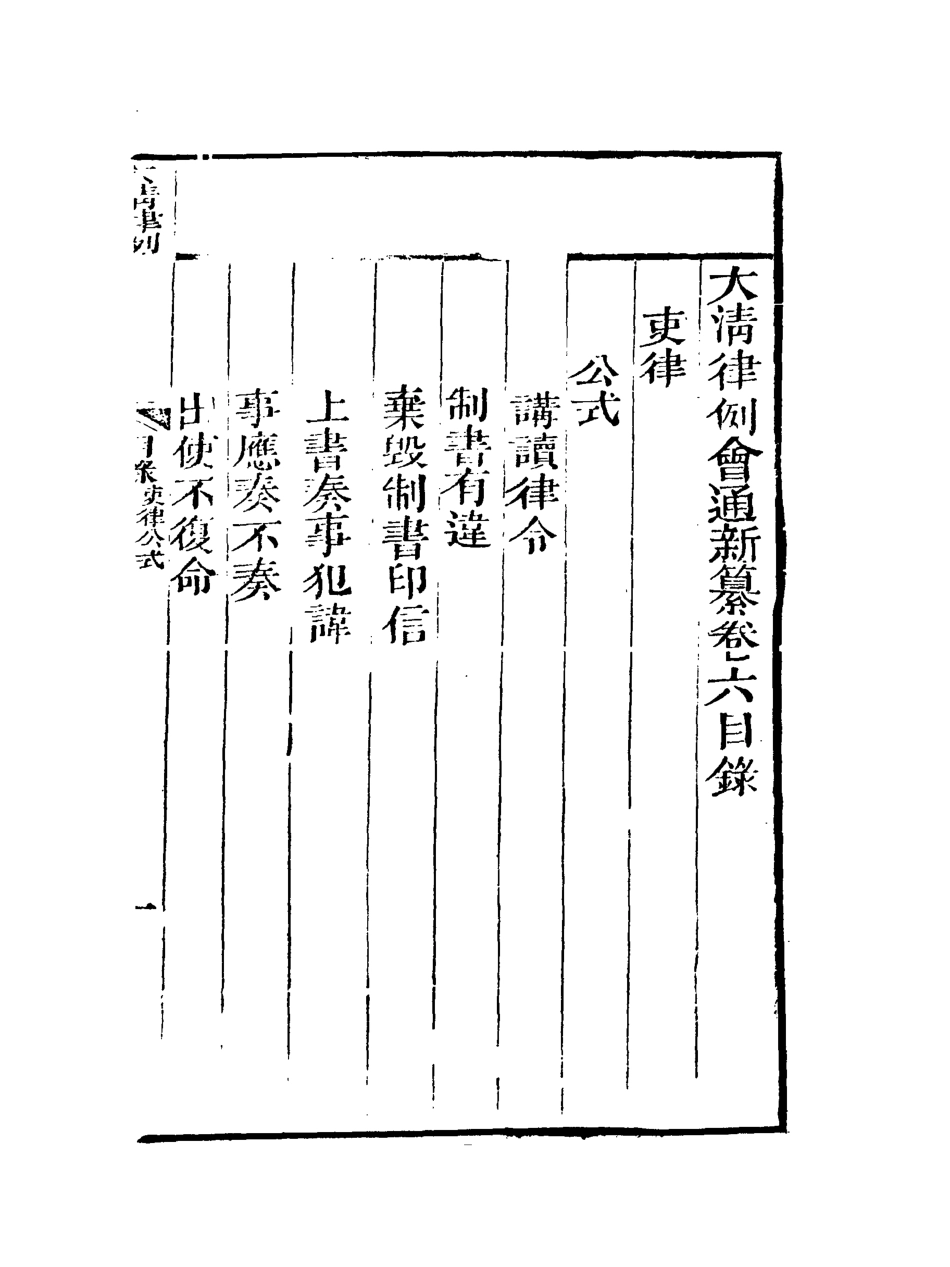 大清律例會通新纂卷六目錄
吏律
公式
講讀律令
制書有違
棄毀制書印信
上書奏事犯諱
事應奏不奏
出使不復命
大清律例
目錄 吏律公式
一